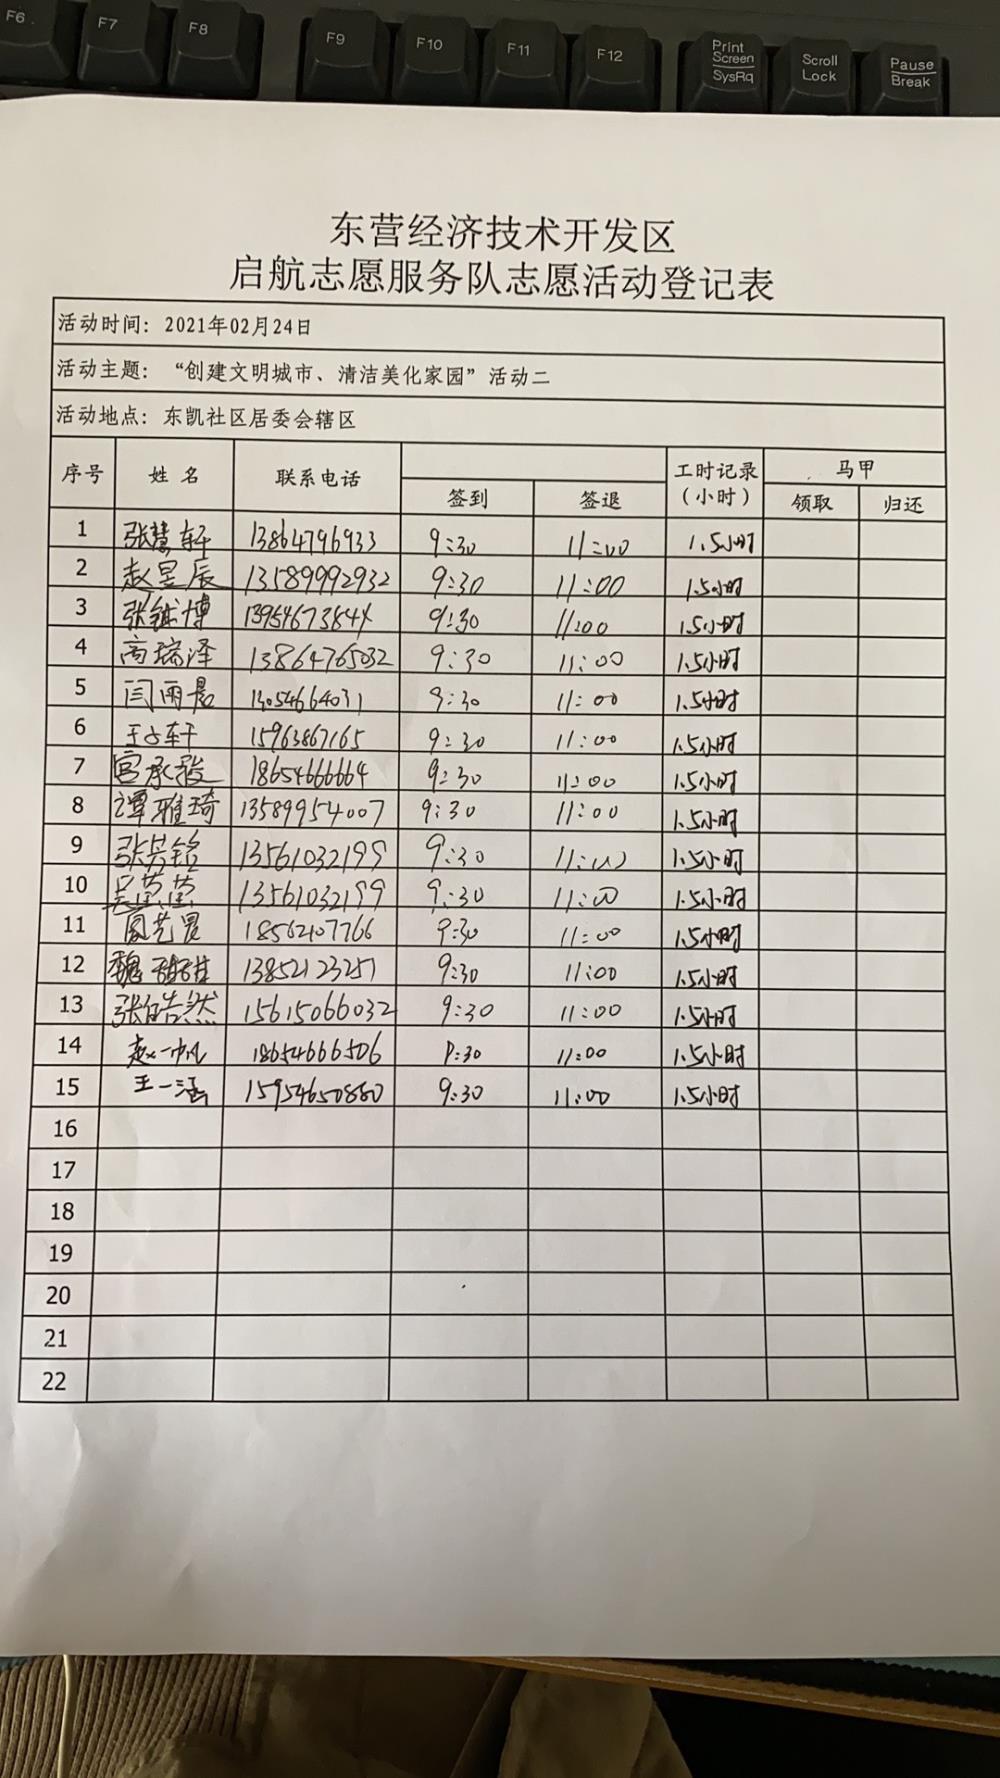 F6 F7 F8 F9 F10 F11 F12 Print Screen SysRq Scroll Lock Pause Break
东营经济技术开发区
启航志愿服务队志愿活动登记表
活动时间：2021年02月24日
活动主题：“创建文明城市、清洁美化家园”活动二
活动地点：东凯社区居委会辖区
序号 姓名 联系电话 签到 签退 工时记录（小时） 马甲 领取 归还
1 张慧轩 13864796933 9:30 11:00 1.5小时
2 赵昱辰 13589992932 9:30 11:00 1.5小时
3 张钺博 13954673844 9:30 11:00 1.5小时
4 高瑞泽 13864765032 9:30 11:00 1.5小时
5 闫雨 13054664031 9:30 11:00 1.5小时
6 王子轩 15963867165 9:30 11:00 1.5小时
7 宫承毅 18654666664 9:30 11:00 1.5小时
8 谭雅琦 13589954007 9:30 11:00 1.5小时
9 张 铭 13561032199 9:30 11:00 1.5小时
10 吴莹莹 13561032199 9:30 11:00 1.5小时
11 艺晨 18562107766 9:30 11:00 1.5小时
12 魏甜甜 13852123251 9:30 11:00 1.5小时
13 张皓然 15615066032 9:30 11:00 1.5小时
14 赵一帆 18654666506 9:30 11:00 1.5小时
15 王一涵 15954650880 9:30 11:00 1.5小时
16
17
18
19
20
21
22